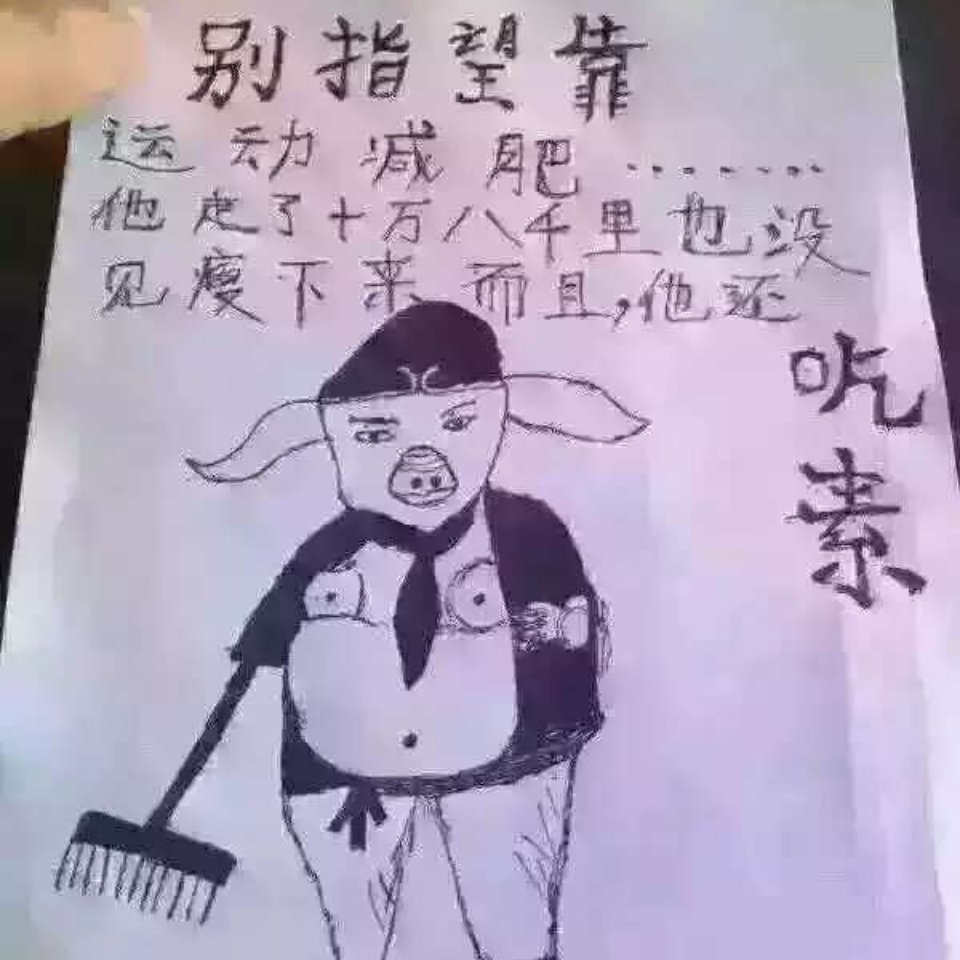 别指望靠
运动减肥........
他走了十万八千里也没
见瘦下来而且,他还
吃
素